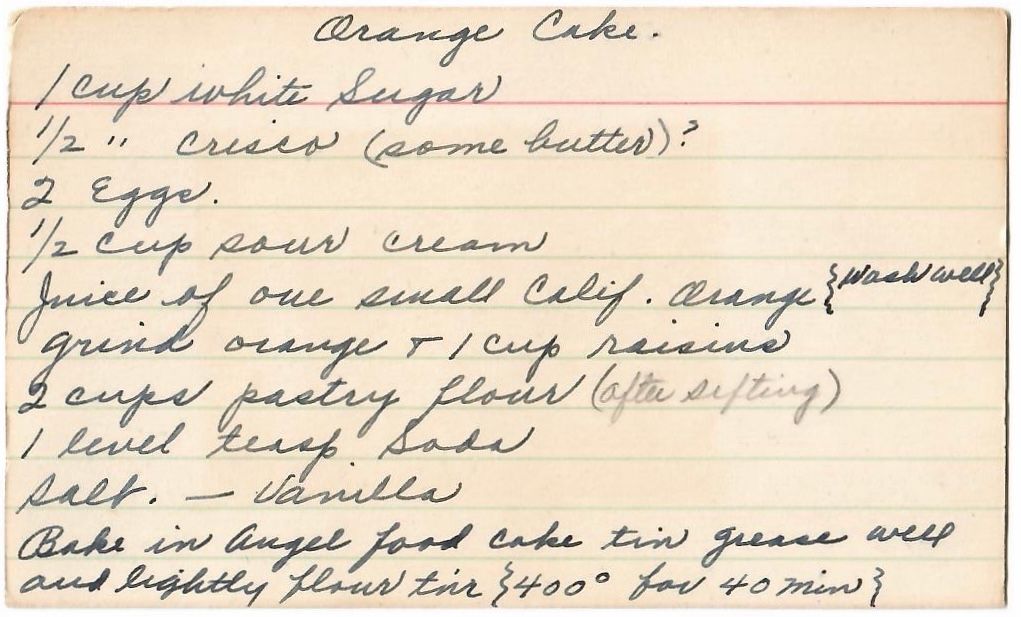 Orange Cake.
1 cup white Sugar
1/2 " Crisco (some butter)?
2 Eggs.
1/2 cup sour cream
Juice of one small Calif. Orange {Wash well}
grind orange + 1 cup raisins
2 cups pastry flour (after sifting)
1 level teasp Soda
Salt. — Vanilla
Bake in Angel food cake tin grease well
and lightly flour tin {400° for 40 min}